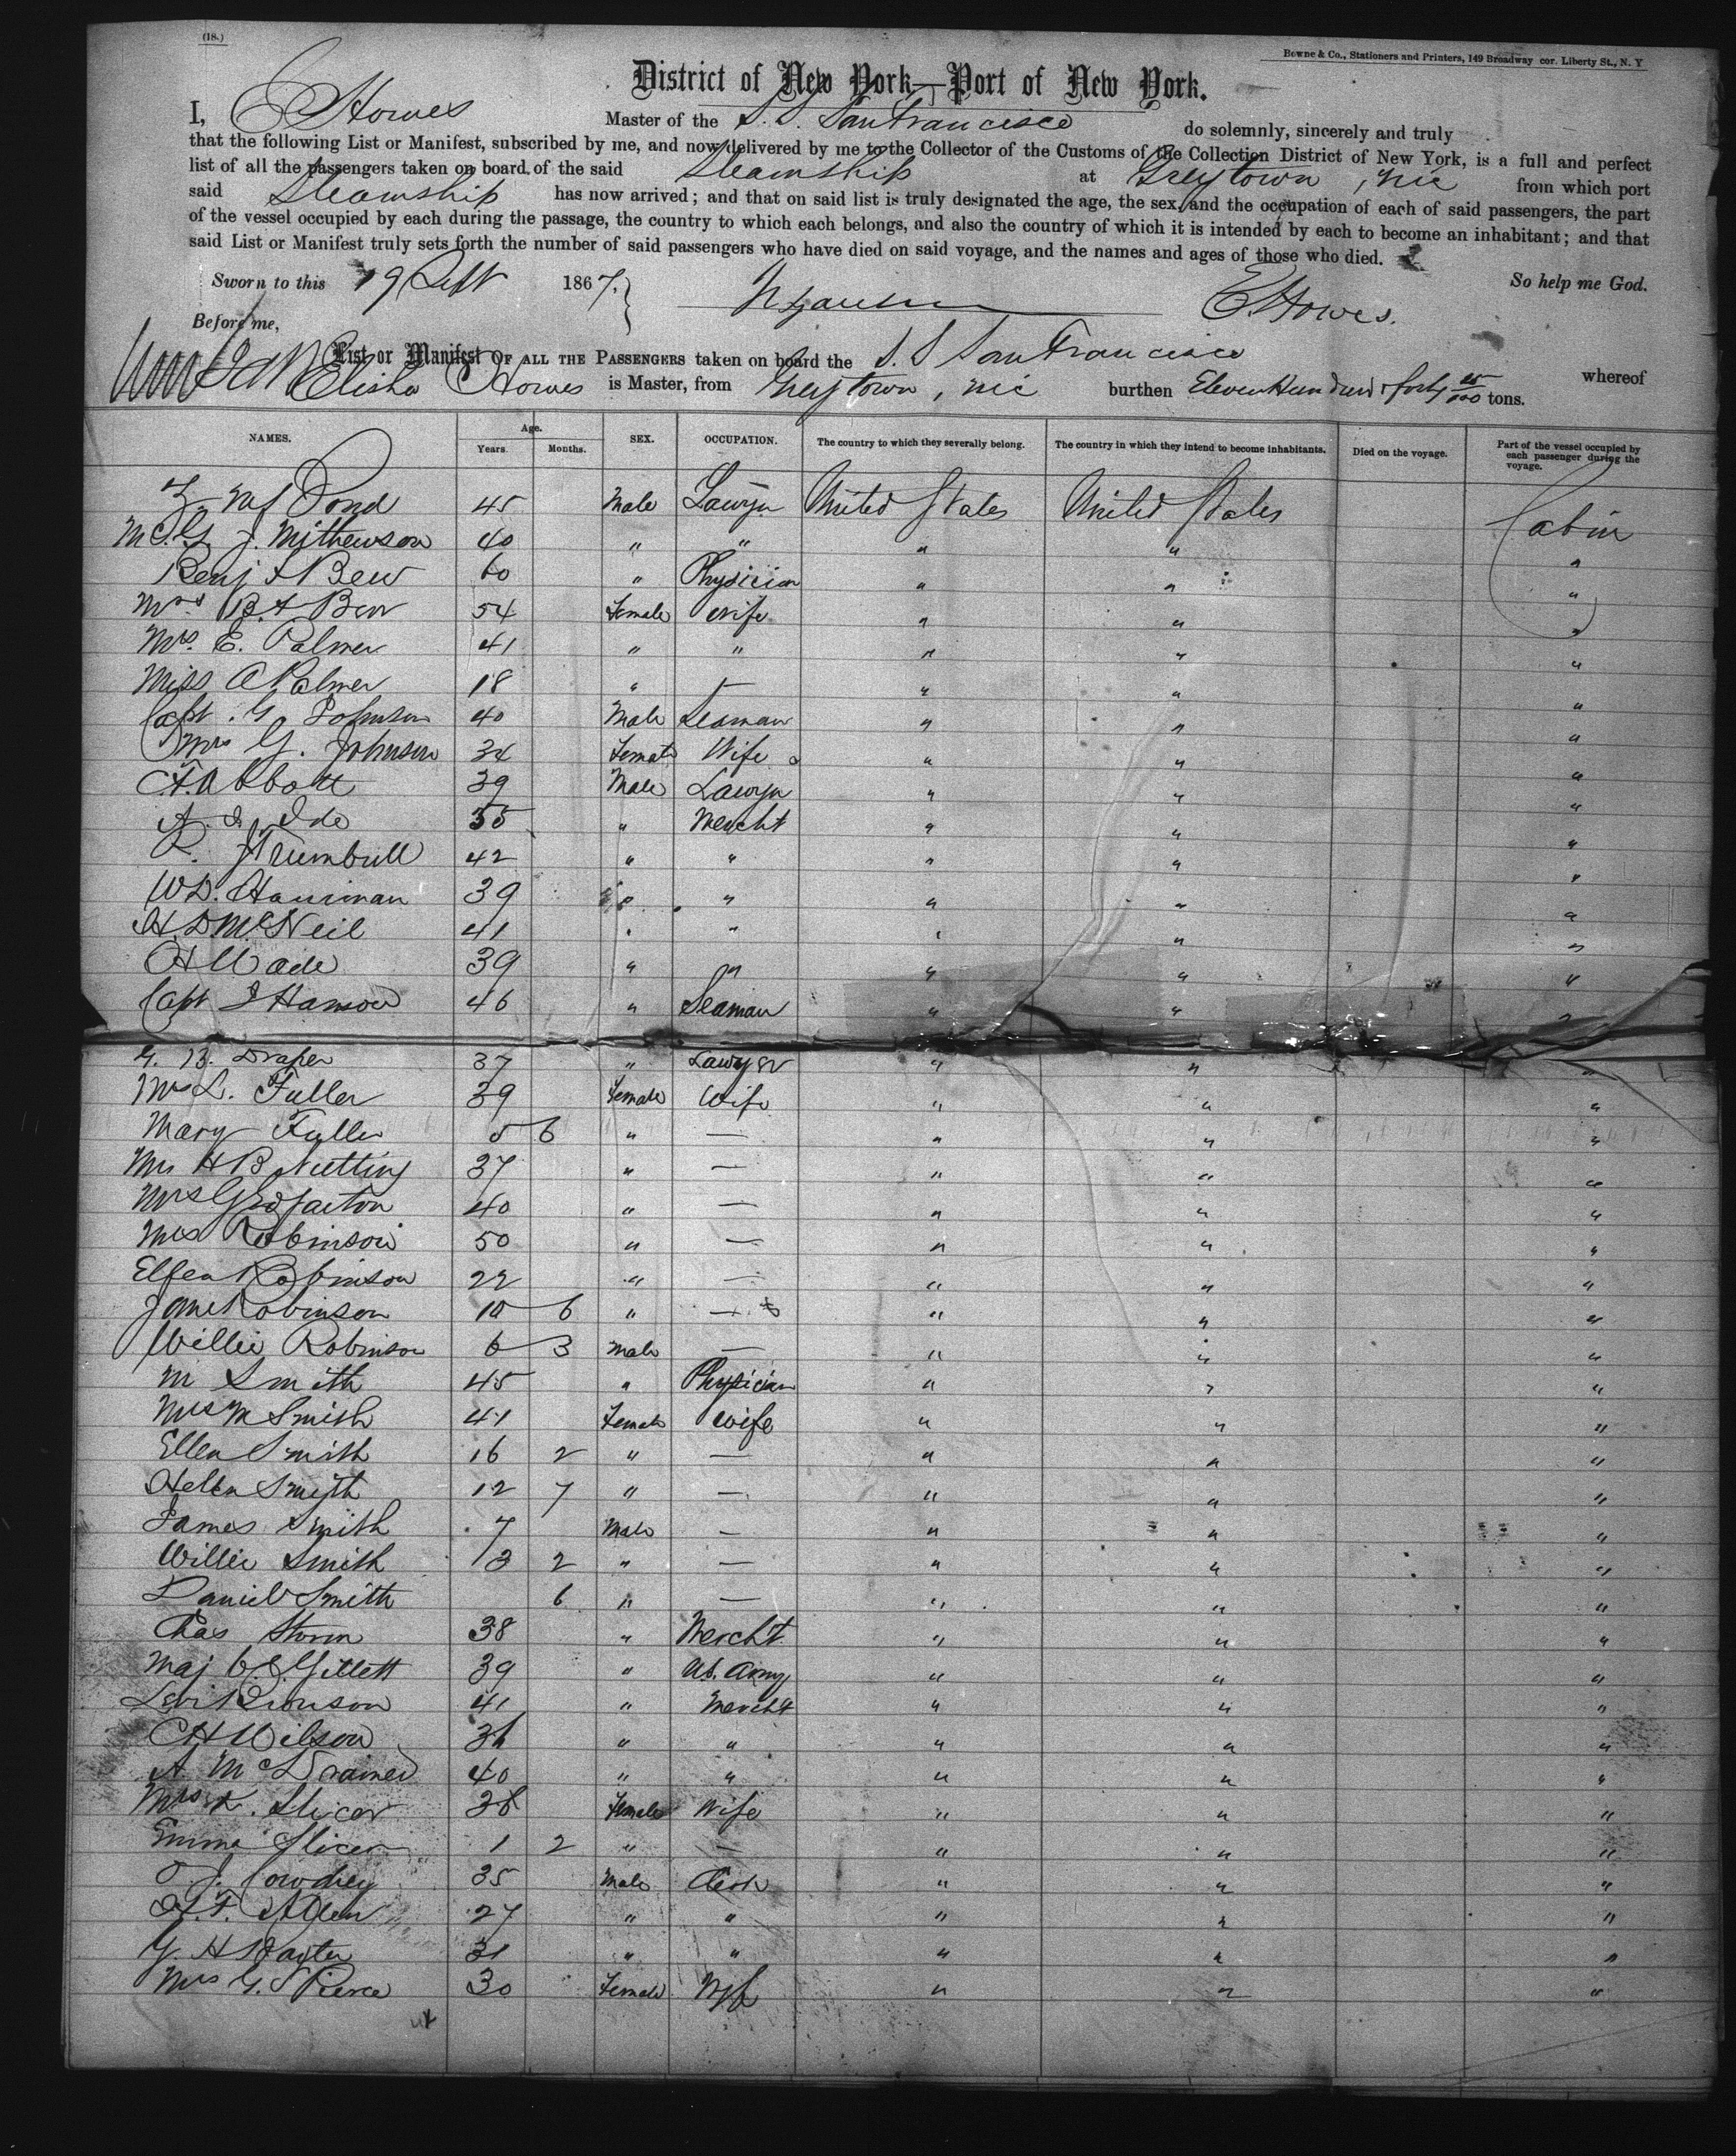 (18.)
Bowne & Co., Stationers and Printers, 149 Broadway cor. Liberty St., N. Y
District of New York—Port of New York.
I, E Howes Master of the S. S. San Francisco do solemnly, sincerely and truly
that the following List or Manifest, subscribed by me, and now delivered by me to the Collector of the Customs of the Collection District of New York, is a full and perfect
list of all the passengers taken on board of the said Steamship at Greytown, Nic from which port
said Steamship has now arrived; and that on said list is truly designated the age, the sex, and the occupation of each of said passengers, the part
of the vessel occupied by each during the passage, the country to which each belongs, and also the country of which it is intended by each to become an inhabitant; and that
said List or Manifest truly sets forth the number of said passengers who have died on said voyage, and the names and ages of those who died.
So help me God.
Sworn to this 19 Sept 1867.
E. Howes.
Before me,
List or Manifest OF ALL THE PASSENGERS taken on board the S. S San Francisco whereof
Elisha Howes is Master, from Greytown, Nic burthen Eleven Hundred & forty 25/100 tons.
NAMES. Age. Years. Months. SEX. OCCUPATION. The country to which they severally belong. The country in which they intend to become inhabitants. Died on the voyage. Part of the vessel occupied by each passenger during the voyage.
Pond 45 Male Lawyer United States United States Cabin
J. Mithewson 40 " " " " "
Benj F Bew 60 " Physician " " "
Mrs B. F. Bew 54 Female Wife " " "
Mrs. E. Palmer 41 " " " " "
Miss A Palmer 18 " — " " "
Capt. G Johnson 40 Male Seaman " " "
Mrs G. Johnson 34 Female Wife " " "
F. Abbott 39 Male Lawyer " " "
A. I. Ide 35 " Mercht " " "
R. Trumbull 42 " " " " "
W D. Harriman 39 " " " " "
H. D McNeil 41 " " " " "
H Wade 39 " " " " "
Capt I Hanson 46 " Seaman " " "
G. B. Draper 37 " Lawyer " " "
Mrs L. Fuller 39 Female Wife " " "
Mary Fuller 5 6 " — " " "
Mrs H B Nutting 37 " — " " "
Mrs Geo 40 " — " " "
Mrs Robinson 50 " — " " "
Ellen Robinson 22 " — " " "
Jane Robinson 10 6 " — " " "
Willie Robinson 6 3 Male — " " "
M Smith 45 " Physician " " "
Mrs M Smith 41 Female Wife " " "
Ellen Smith 16 2 " — " " "
Helen Smith 12 7 " — " " "
James Smith 7 Male — " " "
Willie Smith 3 2 " — " " "
Daniel Smith 6 " — " " "
Chas Storm 38 " Mercht " " "
Maj Gillett 39 " U.S. Army " " "
Levi Bronson 41 " Mercht " " "
C H Wilson 36 " " " " "
A. 40 " " " " "
Mrs K. Slicer 38 Female Wife " " "
Emma Slicer 1 2 " — " " "
O J. Cowdrey 35 Male Clerk " " "
F. Allen 27 " " " " "
G. H Baxter 31 " " " " "
Mrs G. S Pierce 30 Female Wife " " "